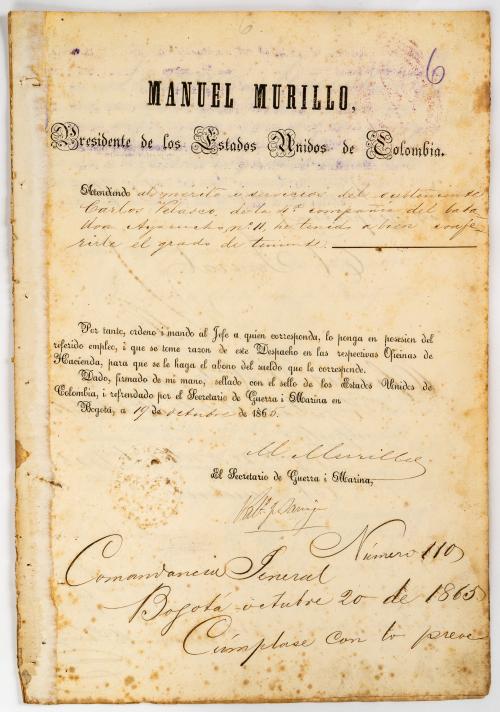 6
MANUEL MURILLO,
Presidente de los Estados Unidos de Colombia.
Atendiendo al mérito i servicios del subteniente
Carlos Velasco, de la 4ª compañia del bata
llon Ayacucho, nº 11, he tenido a bien confe
rirle el grado de teniente.
Por tanto, ordeno i mando al Jefe a quien corresponda, lo ponga en posesion del
referido empleo, i que se tome razon de este Despacho en las respectivas Oficinas de
Hacienda, para que se le haga el abono del sueldo que le corresponde.
Dado, firmado de mi mano, sellado con el sello de los Estados Unidos de
Colombia, i refrendado por el Secretario de Guerra i Marina en
Bogotá, a 19 de octubre de 1865.
M. Murillo
El Secretario de Guerra i Marina,
Número 110
Comandancia Jeneral
Bogotá octubre 20 de 1865
Cúmplase con lo preve